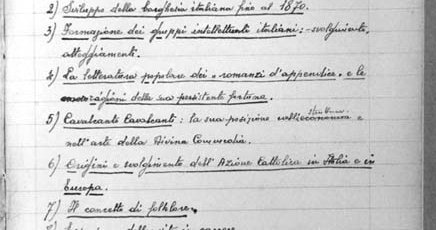 2) Sviluppo della borghesia italiana fino al 1870.
3) Formazione dei gruppi intellettuali italiani: - svolgimento,
atteggiamenti.
4) La letteratura popolare dei "romanzi d'appendice" e le
ragioni della sua persistente fortuna.
5) Cavalcante Cavalcanti: la sua posizione nella struttura e
nell'arte della Divina Commedia.
6) Origini e svolgimento dell'Azione Cattolica in Italia e in
Europa.
7) Il concetto di folklore.
della vita in carcere